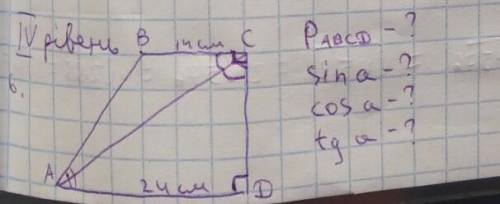 IV рівень
6.
B 14 см C
A 24 см D
P ABCD - ?
sin a - ?
cos a - ?
tg a - ?